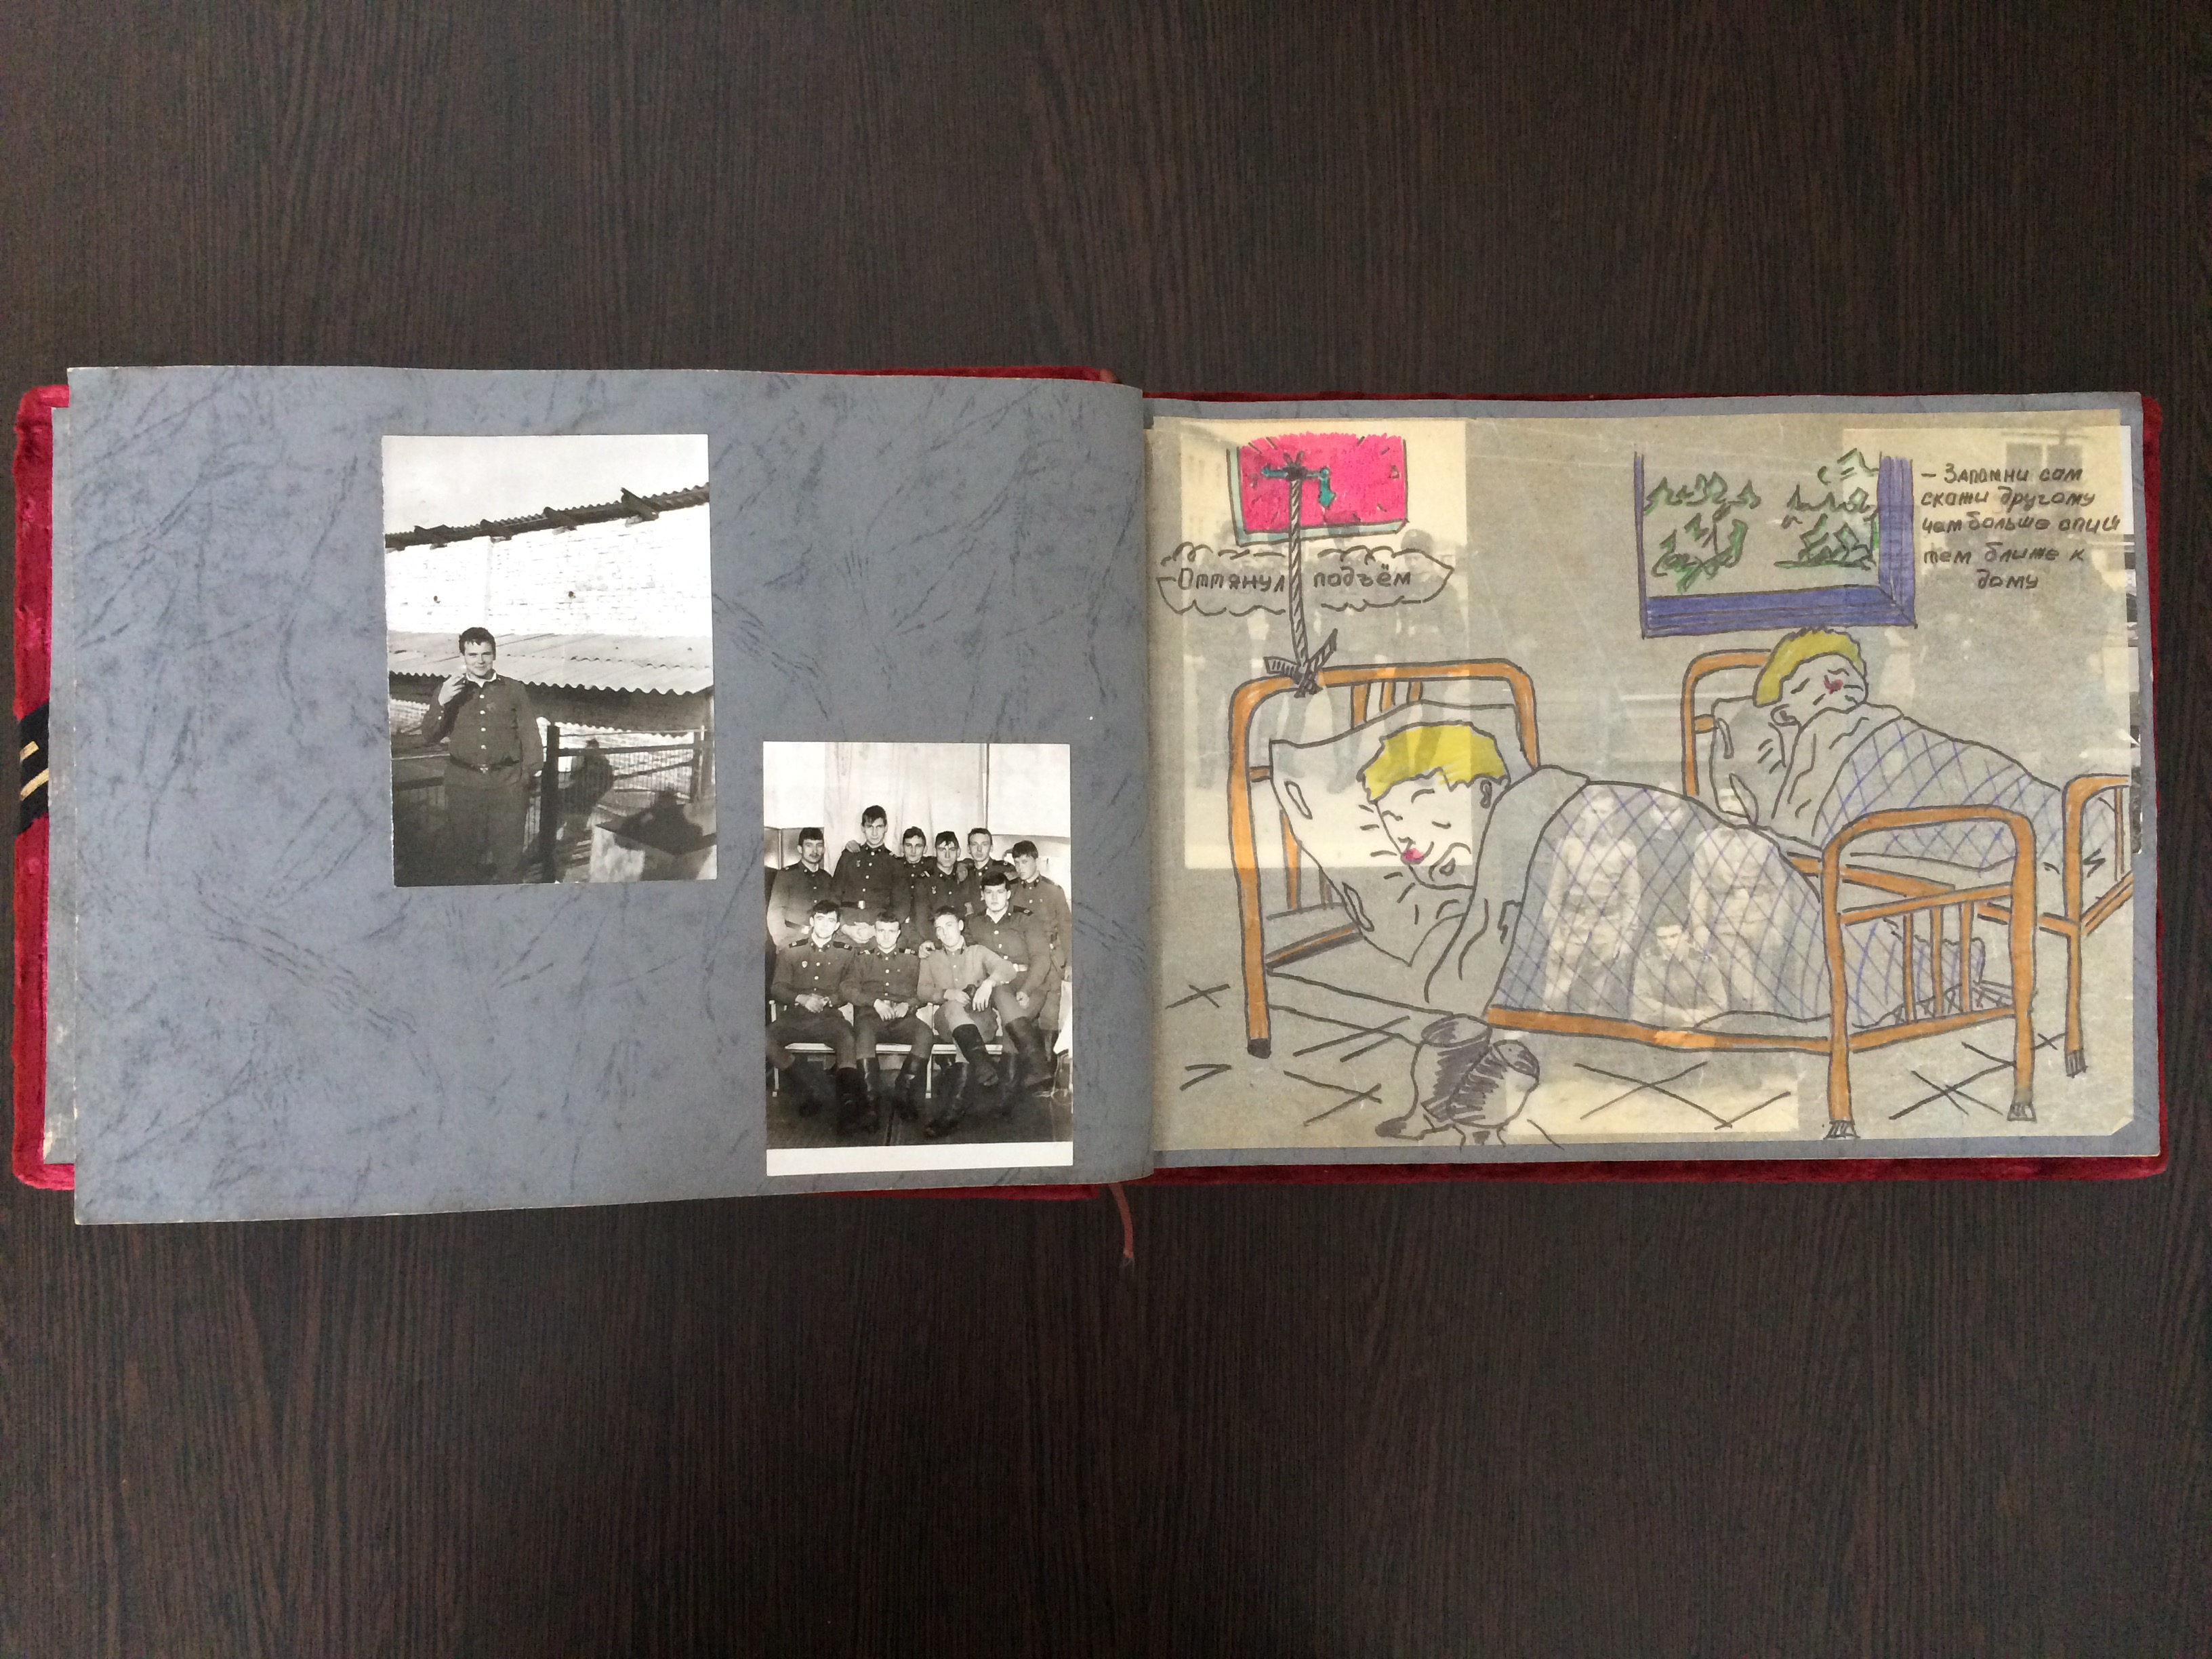 -Оттянул подъём
- Запомни сам
скажи другому
чем больше спиш
тем ближе к
дому